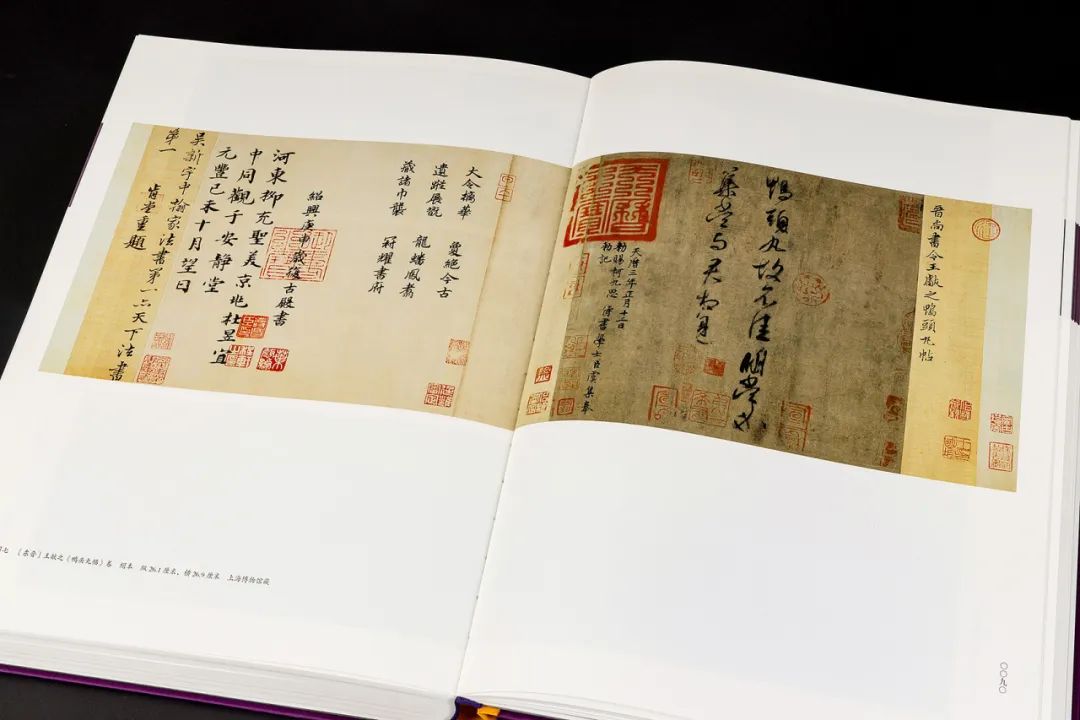 晉尚書令王獻之鴨頭丸帖
鴨頭丸故不佳明當必
集當與君相見
天曆三年正月十二日
敕賜柯九思 侍書學士臣虞集奉
敕記
大令摛華 夐絕今古
遺蹤展翫 龍蟠鳳翥
藏諸巾襲 冠耀書府
紹興庚申歲復古殿書
河東柳充聖美京兆杜昱宜
中同觀于安靜堂
元豐己未十月望日
吳新宇中翰家法書第一亦天下法書
第一
肯堂重題
七 〔东晋〕王献之《鸭头丸帖》卷 绢本 纵26.1厘米、横26.9厘米 上海博物馆藏
〇〇九〇